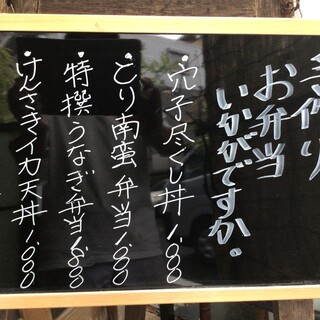 手作り
お弁当
いかがですか。
・穴子尽くし丼 1,000
・とり南蛮弁当 1,000
・特撰うなぎ弁当 1,500
・けんさきイカ天丼 1,000